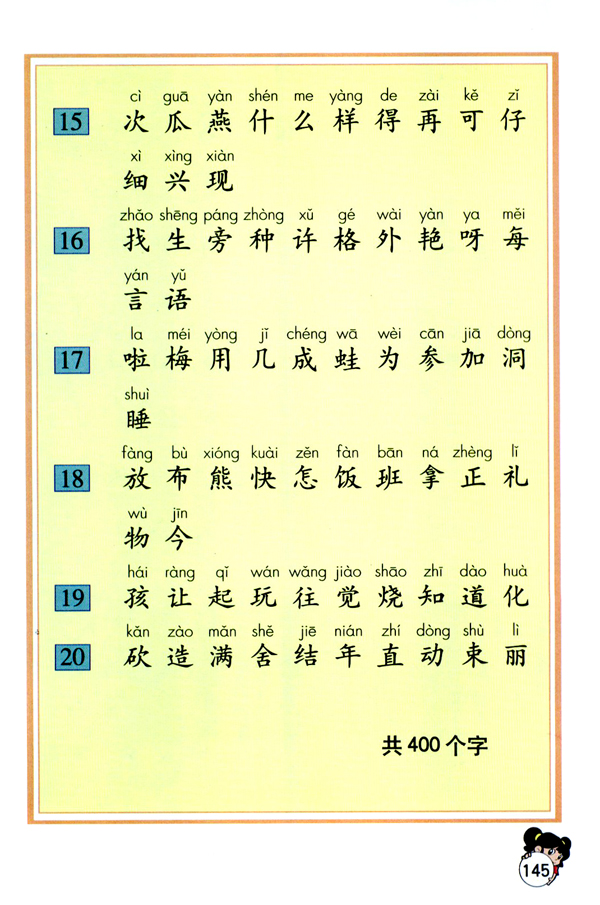 cì guā yàn shén me yàng de zài kě zǐ
15 次 瓜 燕 什 么 样 得 再 可 仔
xì xìng xiàn
细 兴 现
zhǎo shēng páng zhòng xǔ gé wài yàn ya měi
16 找 生 旁 种 许 格 外 艳 呀 每
yán yǔ
言 语
la méi yòng jǐ chéng wā wèi cān jiā dòng
17 啦 梅 用 几 成 蛙 为 参 加 洞
shuì
睡
fàng bù xióng kuài zěn fàn bān ná zhèng lǐ
18 放 布 熊 快 怎 饭 班 拿 正 礼
wù jīn
物 今
hái ràng qǐ wán wǎng jiào shāo zhī dào huà
19 孩 让 起 玩 往 觉 烧 知 道 化
kǎn zào mǎn shě jiē nián zhí dòng shù lì
20 砍 造 满 舍 结 年 直 动 束 丽
共 400 个字
145